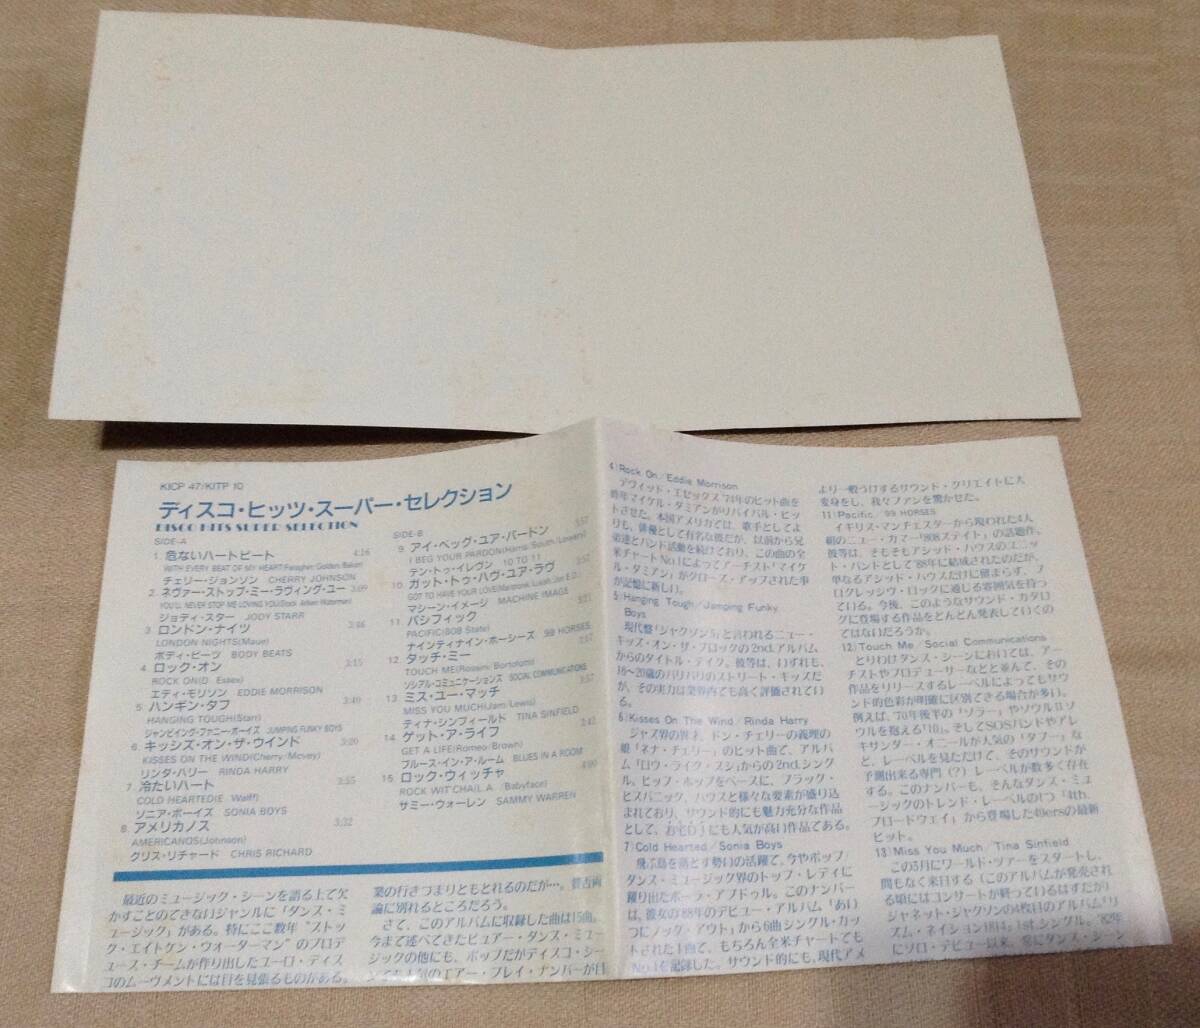 KICP 47/KITP 10
ディスコ・ヒッツ・スーパー・セレクション
DISCO HITS SUPER SELECTION
SIDE-A
1. 危ないハートビート 4:16
WITH EVERY BEAT OF MY HEART
チェリー・ジョンソン CHERRY JOHNSON
2. ネヴァー・ストップ・ミー・ラヴィング・ユー 3:09
YOU'LL NEVER STOP ME LOVING YOU
ジョディ・スター JODY STARR
3. ロンドン・ナイツ 3:46
LONDON NIGHTS(Maue)
ボディ・ビーツ BODY BEATS
4. ロック・オン 3:15
ROCK ON(D. Essex)
エディ・モリソン EDDIE MORRISON
5. ハンギン・タフ 3:40
HANGING TOUGH(Starr)
ジャンピイング・ファニー・ボーイズ JUMPING FUNKY BOYS
6. キッシズ・オン・ザ・ウインド 3:20
KISSES ON THE WIND(Cherry/Mcvey)
リンダ・ハリー RINDA HARRY
7. 冷たいハート 3:55
COLD HEARTED(E. Wolff)
ソニア・ボーイズ SONIA BOYS
8. アメリカノス 3:32
AMERICANOS(Johnson)
クリス・リチャード CHRIS RICHARD
SIDE-B
9. アイ・ベッグ・ユア・パードン 3:57
I BEG YOUR PARDON
テン・トゥ・イレヴン 10 TO 11
10. ガット・トゥ・ハヴ・ユア・ラヴ 3:52
GOT TO HAVE YOUR LOVE
マシーン・イメージ MACHINE IMAGE
11. パシフィック
PACIFIC(808 State)
ナインティナイン・ホーシーズ '99 HORSES
12. タッチ・ミー 3:57
TOUCH ME(Rossini/Bortolotti)
ソシアル・コミュニケーションス SOCIAL COMMUNICATIONS
13. ミス・ユー・マッチ 3:57
MISS YOU MUCH(Jam/Lewis)
ティナ・シンフィールド TINA SINFIELD
14. ゲット・ア・ライフ 3:42
GET A LIFE(Romeo/Brown)
ブルース・イン・ア・ルーム BLUES IN A ROOM
15. ロック・ウィッチャ 4:00
ROCK WIT'CHA(L.A./Babyface)
サミー・ウォーレン SAMMY WARREN
最近のミュージック・シーンを語る上で欠
かすことのできないジャンルに「ダンス・ミ
ュージック」がある。特にここ数年“ストッ
ク・エイトケン・ウォーターマン”のプロデ
ュース・チームが作り出したユーロ・ディス
コのムーヴメントには目を見張るものがある。
業の行きづまりともとれるのだが…。賛否両
論に別れるところだろう。
さて、このアルバムに収録した曲は15曲。
今まで述べてきたピュアー・ダンス・ミュー
ジックの他にも、ポップだがディスコ・シー
ンでも人気のエアー・プレイ・ナンバーが目
4) Rock On/Eddie Morrison
デヴィッド・エセックス'74年のヒット曲を
昨年マイケル・ダミアンがリバイバル・ヒッ
トさせた。本国アメリカでは、歌手としてよ
りも、俳優として有名な彼だが、以前から兄
弟達とバンド活動を続けており、この曲の全
米チャートNo.1によってアーチスト「マイケ
ル・ダミアン」がクローズ・アップされた事
が記憶に新しい。
5) Hanging Tough/Jamping Funky
Boys
現代盤「ジャクソン5」と言われるニュー・
キッズ・オン・ザ・ブロックの2nd.アルバム
からのタイトル・テイク。彼等は、いずれも、
16〜20歳のバリバリのストリート・キッズだ
が、その実力は業界内でも高く評価されてい
る。
6) Kisses On The Wind/Rinda Harry
ジャズ界の異才、ドン・チェリーの義理の
娘「ネナ・チェリー」のヒット曲で、アルバ
ム「ロウ・ライク・スシ」からの2nd.シング
ル。ヒップ・ホップをベースに、ブラック・
ヒスパニック、ハウスと様々な要素が盛り込
まれており、サウンド的にも魅力充分な作品
として、おセロ」にも人気が高い作品である。
7) Cold Hearted/Sonia Boys
飛ぶ鳥を落とす勢いの活躍で、今やポップ/
ダンス・ミュージック界のトップ・レディに
躍り出たポーラ・アブドゥル。このナンバー
は、彼女の'88年のデビュー・アルバム「あい
つにノック・アウト」から6曲シングル・カッ
トされた1曲で、もちろん全米チャートでも
No.1を記録した。サウンド的にも、現代アメ
より一般うけするサウンド・クリエイトに大
変身をし、我々ファンを驚かせた。
11) Pacific/'99 HORSES
イギリス・マンチェスターから現われた4人
組のニュー・カマー「808ステイト」の話題作。
彼等は、そもそもアシッド・ハウスのユニッ
ト・バンドとして'88年に結成されたのだが、
単なるアシッド・ハウスだけに留まらず、プ
ログレッシヴ・ロックに通じる雰囲気を持っ
ている。今後、このようなサウンド・カタロ
グに登場する作品をどんどん発表していくの
ではないだろうか。
12) Touch Me/Social Communications
とりわけダンス・シーンにおいては、アー
チストやプロデューサーなどと並んで、その
作品をリリースするレーベルによってもサウ
ンド的色彩が明確に区別できる場合が多い。
例えば、'70年後半の「ソラー」やソウルIIソ
ウルを抱える「10」。そしてSOSバンドやアレ
キサンダー・オニールが人気の「タブー」な
ど、レーベルを見ただけで、そのサウンドが
予測出来る専門(?)レーベルが数多く存在
する。このナンバーも、そんなダンス・ミュ
ージックのトレンド・レーベルの1つ「4th.
ブロードウェイ」から登場した49ersの最新
ヒット。
13) Miss You Much/Tina Sinfield
この3月にワールド・ツアーをスタートし、
間もなく来日する(このアルバムが発売され
る頃にはコンサートが終っているはずだが)
ジャネット・ジャクソンの4枚目のアルバム「リ
ズム・ネイション1814」1st.シングル。'82年
にソロ・デビュー以来、常にダンス・シーン